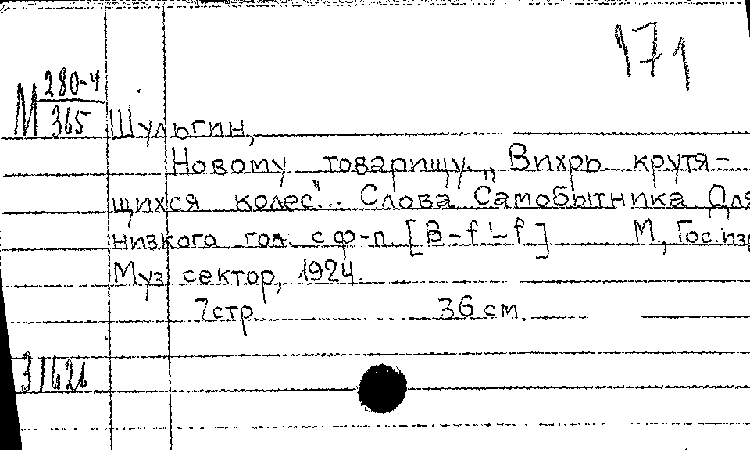 171
М 280-4
365
Шульгин,
Новому товарищу. „Вихрь крутя-
щихся колес". Слова Самобытника Для
низкого гол. с ф-п. [B-f¹-f] М, Гос.изд
Муз сектор, 1924.
7стр. 36 см.
31626